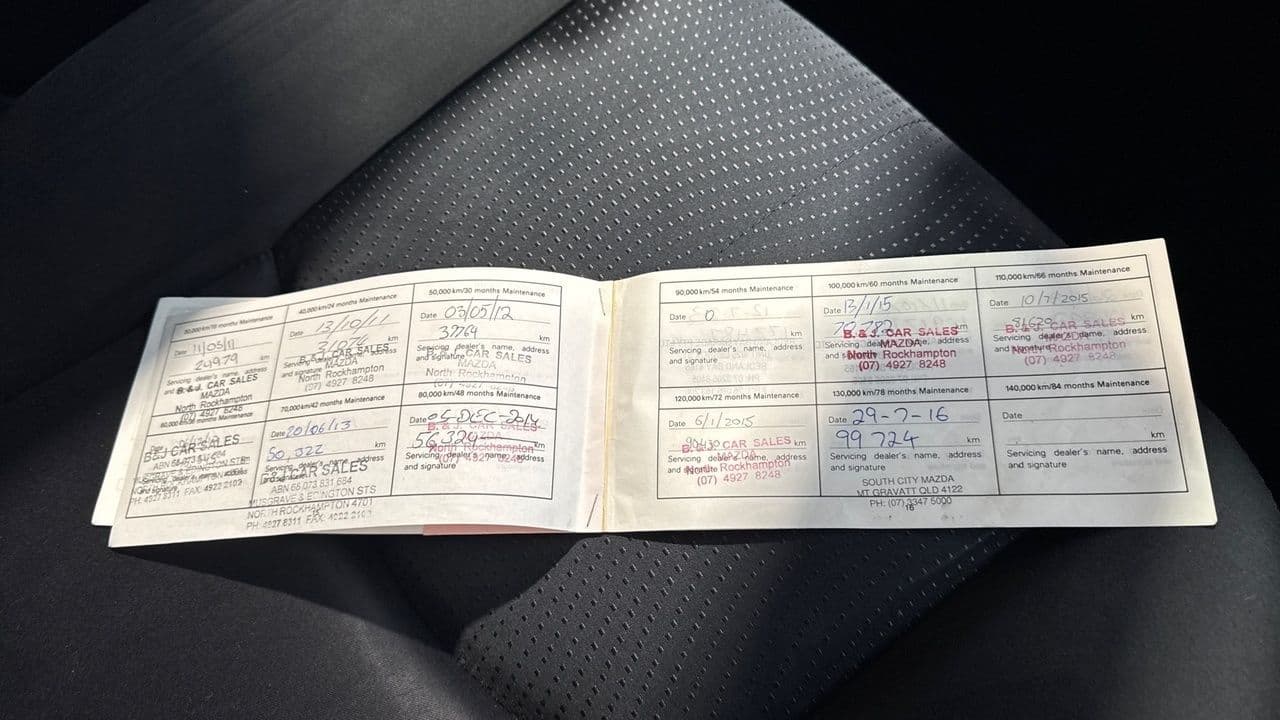 30,000 km/18 months Maintenance
Date 11/05/11
24979 km
Servicing dealer's name, address
and
B. & J. CAR SALES
MAZDA
North Rockhampton
(07) 4927 8248
40,000 km/24 months Maintenance
Date 13/10/11
km
CAR SALES
and signature MAZDA
North Rockhampton
(07) 4927 8248
50,000 km/30 months Maintenance
Date 03/05/12
37764
km
Servicing dealer's name, address
and signature CAR SALES
MAZDA
North Rockhampton
(07) 4927 8248
months Maintenance
B & J CAR SALES
ABN 65 073 831 684
PH: 4927 8311 FAX: 4922 2103
70,000 km/42 months Maintenance
Date 20/06/13
50,322 km
Servicing dealer's name, address
and signature
B & J CAR SALES
ABN 65 073 831 684
MUSGRAVE & EDINGTON STS
NORTH ROCKHAMPTON 4701
PH: 4927 8311 FAX: 4922 2103
15
80,000 km/48 months Maintenance
Date 05-DEC-2014
B. & J. CAR SALES
56324 km
North Rockhampton
(07) 4927 8248
Servicing dealer's name, address
and signature
90,000 km/54 months Maintenance
Date
km
Servicing dealer's name, address
and signature
100,000 km/60 months Maintenance
Date 13/1/15
km
B. & J. CAR SALES
Servicing dealer's name, address
MAZDA
and signature
North Rockhampton
(07) 4927 8248
110,000 km/66 months Maintenance
Date 10/7/2015
km
B. & J. CAR SALES
Servicing dealer's name, address
and signature
North Rockhampton
(07) 4927 8248
120,000 km/72 months Maintenance
Date 6/1/2015
km
B. & J. CAR SALES
Servicing dealer's name, address
MAZDA
and signature
North Rockhampton
(07) 4927 8248
130,000 km/78 months Maintenance
Date 29-7-16
99 724 km
Servicing dealer's name, address
and signature
SOUTH CITY MAZDA
MT GRAVATT QLD 4122
PH: (07) 3347 5000
16
140,000 km/84 months Maintenance
Date
km
Servicing dealer's name, address
and signature